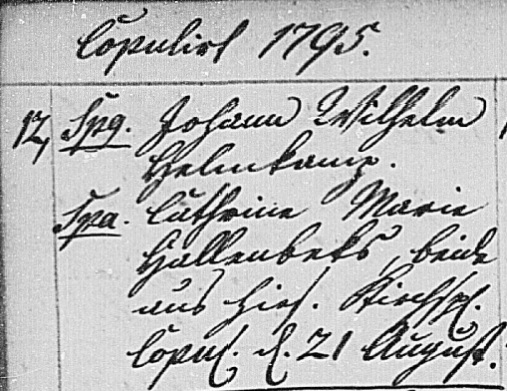 Copulirt 1795.
12, Spg. Johann Wilhelm
Helmkamp.
Spa. Cathrine Marie
Hallenbeks, beide
aus hies. Kirchsp.
Copul. d. 21 August.